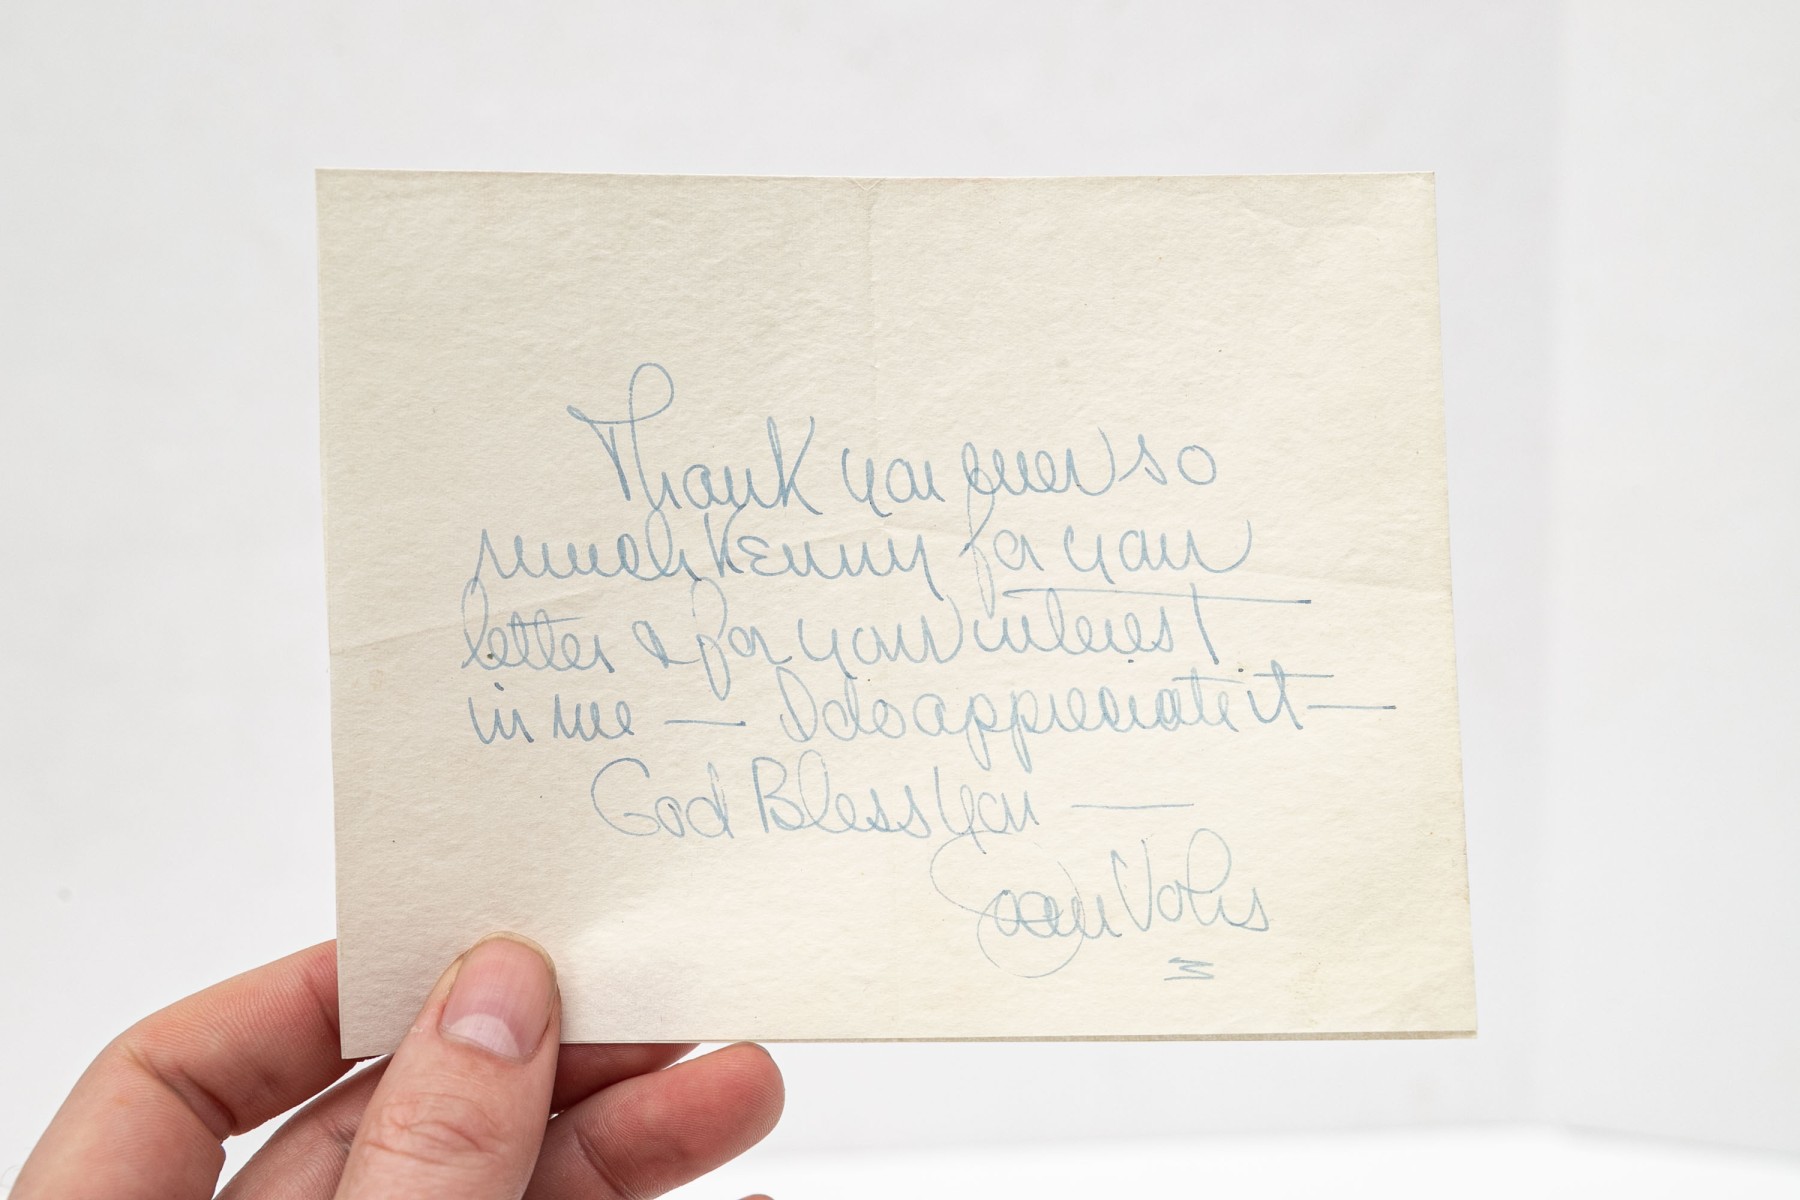 Thank you ever so
much Kenny for your
letter & for your interest
in me — I do appreciate it —
God Bless You —
Joan Vohs